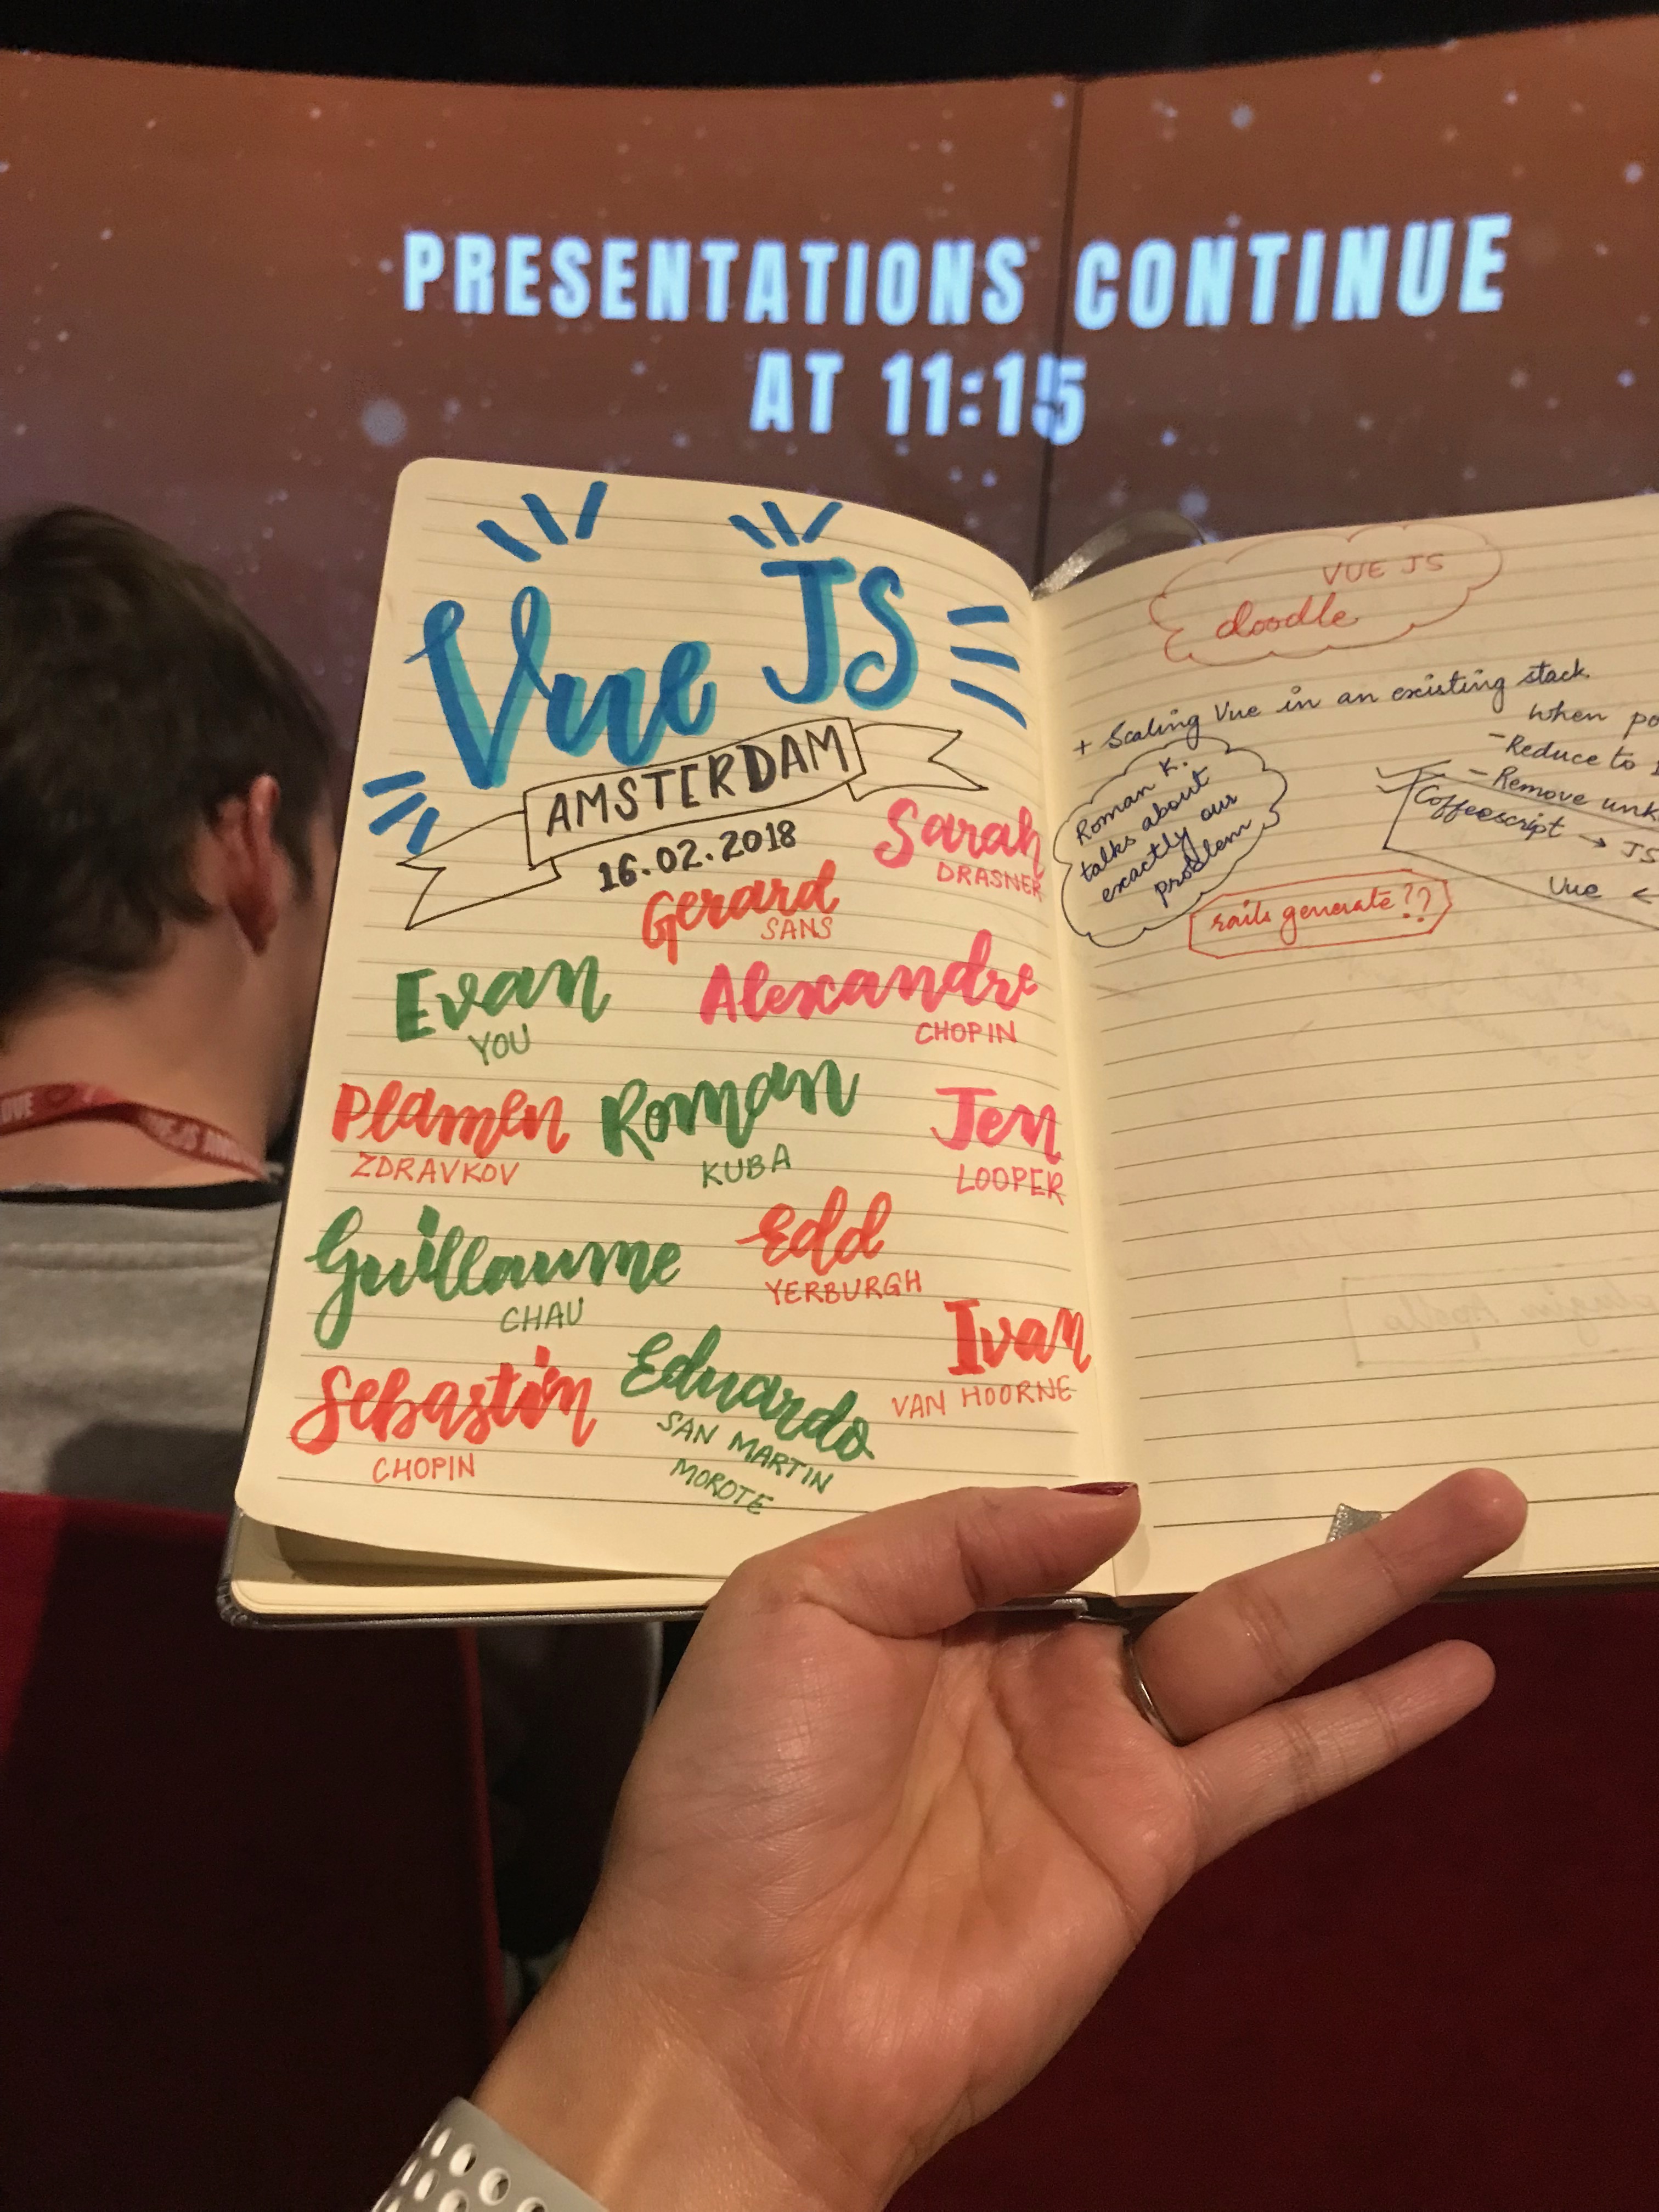 PRESENTATIONS CONTINUE
AT 11:15
Vue JS
AMSTERDAM
16.02.2018
Sarah
DRASNER
Gerard
SANS
Evan
YOU
Alexandre
CHOPIN
Plamen
ZDRAVKOV
Roman
KUBA
Jen
LOOPER
Guillaume
CHAU
Edd
YERBURGH
Ivan
VAN HOORNE
Sebastin
CHOPIN
Eduardo
SAN MARTIN
MOROTE
VUE JS
doodle
+ Scaling Vue in an existing stack.
when po
- Reduce to
- Remove unk
Coffeescript → JS
Vue ←
Roman K.
talks about
exactly our
problem
rails generate??
LOVE